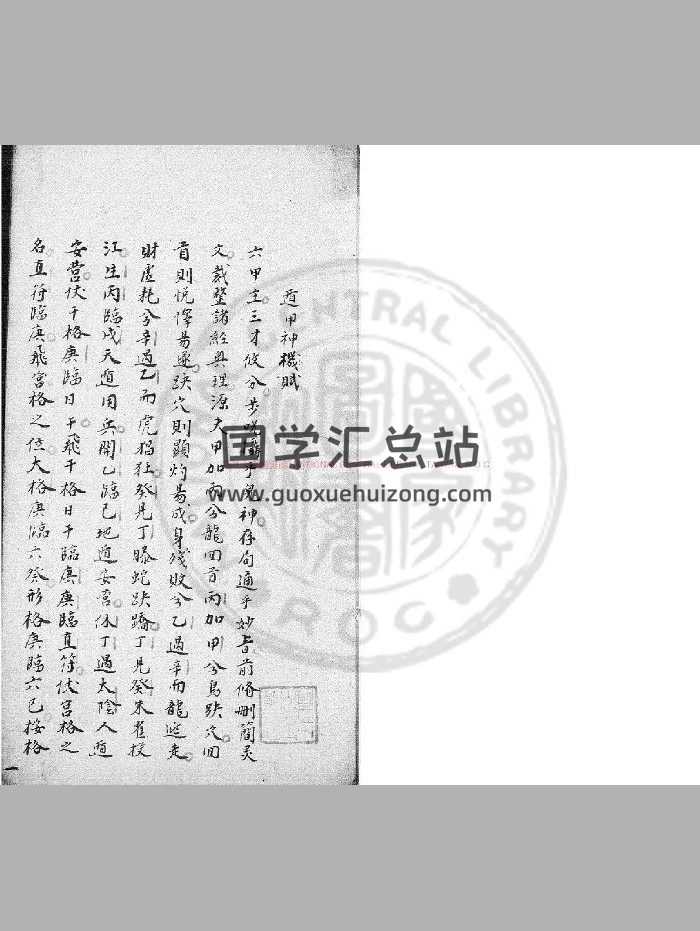 遁甲神機賦
六甲主三才攸分步咒攝乎鬼神存局通乎妙旨前脩刪簡灵
文裁整諸經奧理源夫甲加丙兮龍回首丙加甲兮鳥跌穴回
首則悅懌易遂跌穴則顯灼易成身殘敗兮乙過辛而龍逃走
財虛耗兮辛過乙而虎猖狂癸見丁騰蛇跌蹻丁見癸朱雀投
江生丙臨戊天遁用兵開乙臨己地遁安營休丁過太陰人遁
安營伏干格庚臨日干飛干格日干臨庚庚臨直符伏宮格之
名直符臨庚飛宮格之位大格庚臨六癸形格庚臨六己按格
国学汇总站
www.guoxuehuizong.com
CENTRAL LIBRARY
ROC